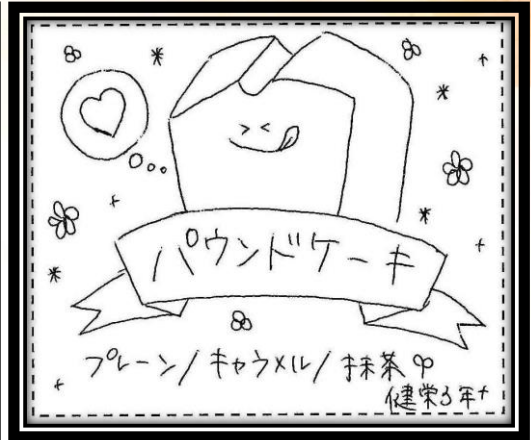 パウンドケーキ
プレーン/キャラメル/抹茶
健栄3年